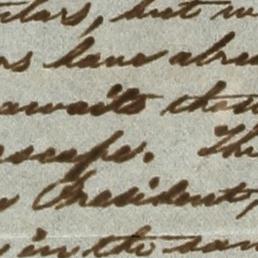 ulars, but w
rs have alre
awaits them
escape. The
President,
in the sam